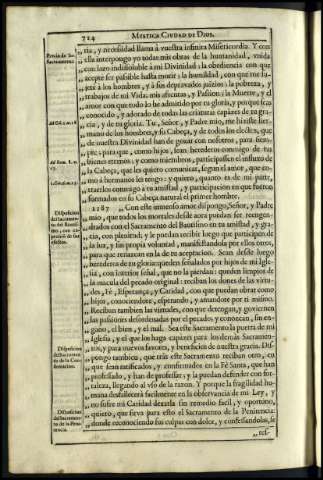 724 MISTICA CIUDAD DE DIOS,
„ ria, y necesidad llama à vuestra infinita Misericordia. Y con
„ ella interpongo yo todas mis obras de la humanidad, vnida
„ con lazo indisoluble à mi Divinidad: la obediencia con que
„ acepté ser passible hasta morir: la humildad, con que me su-
„ jeté à los hombres, y à sus depravados juizios: la pobreza, y
„ trabajos de mi Vida, mis afrentas, y Passion: la Muerte, y el
„ amor con que todo lo he admitido por tu gloria, y porque seas
„ conocido, y adorado de todas las criaturas capaces de tu gra-
„ cia, y de tu gloria. Tu, Señor, y Padre mio, me hiziste her-
„ mano de los hombres, y su Cabeça, y de todos los electos, que
„ de nuestra Divinidad han de gozar con nosotros, para siem-
„ pre; para que, como hijos, sean herederos conmigo de tus
„ bienes eternos: y como miembros, participassen el influxo de
„ la Cabeça, que les quiero comunicar, segun el amor, que co-
„ mo à hermanos les tengo: y quiero, quanto es de mi parte,
„ traerlos conmigo à tu amistad, y participacion en que fueron
„ formados en su Cabeça natural el primer hombre.
„ 1187 Con este inmenso amor dispongo, Señor, y Padre
„ mio, que todos los mortales desde aora puedan ser reengen-
„ drados con el Sacramento del Bautismo en tu amistad, y gra-
„ cia, con plenitud: y le puedan recibir luego que participen de
„ la luz, y sin propia voluntad, manifestandola por ellos otros,
„ para que renazcan en la de tu aceptacion. Sean desde luego
„ herederos de tu gloria: queden señalados por hijos de mi Igle-
„ sia, con interior señal, que no la pierdan: queden limpios de
„ la macula del pecado original: reciban los dones de las virtu-
„ des, Fè, Esperança, y Caridad, con que puedan obrar como
„ hijos, conociendote, esperando, y amandote por ti mismo.
„ Reciban tambien las virtudes, con que detengan, y goviernen
„ las passiones desordenadas por el pecado, y conozcan, sin en-
„ gaño, el bien, y el mal. Sea este Sacramento la puerta de mi
„ Iglesia, y el que los haga capazes para los demàs Sacramen-
„ tos, y para nuevos favores, y beneficios de nuestra gracia. Dis-
„ pongo tambien, que tràs este Sacramento reciban otro, en
„ que sean ratificados, y confirmados en la Fè Santa, que han
„ professado, y han de professar: y la puedan defender con for-
„ taleza, llegando al vso de la razon. Y porque la fragilidad hu-
„ mana desfallecerà facilmente en la observancia de mi Ley, y
„ no sufre mi Caridad dexarla sin remedio facil, y oportuno,
„ quiero, que sirva para esto el Sacramento de la Penitencia:
„ donde reconociendo sus culpas con dolor, y confessandolas, se
Disposicion
del Sacramen-
to del Bautis-
mo, con ex-
presion de sus
efectos.
Disposicion
del Sacramen-
to de la Con-
firmacion.
Disposicion
del Sacramen-
to de la Peni-
tencia.